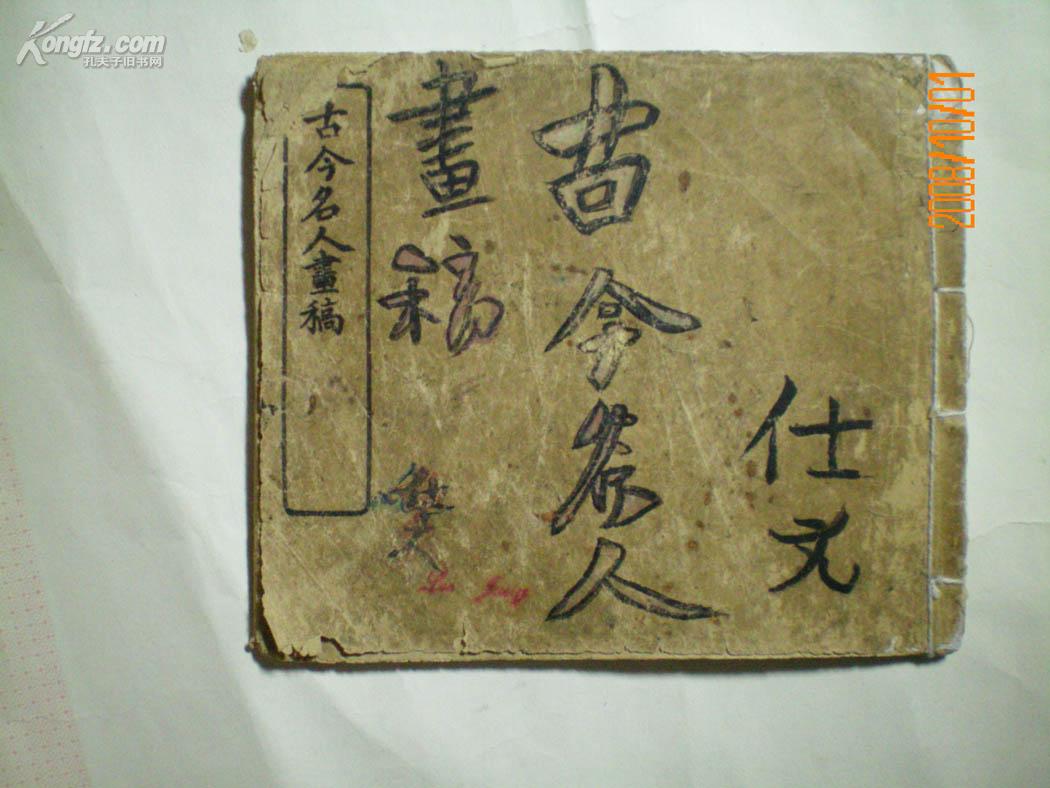 Kongfz.com
孔夫子旧书网
2008/10/01
仕
古今名人
畫稿
古今名人畫稿